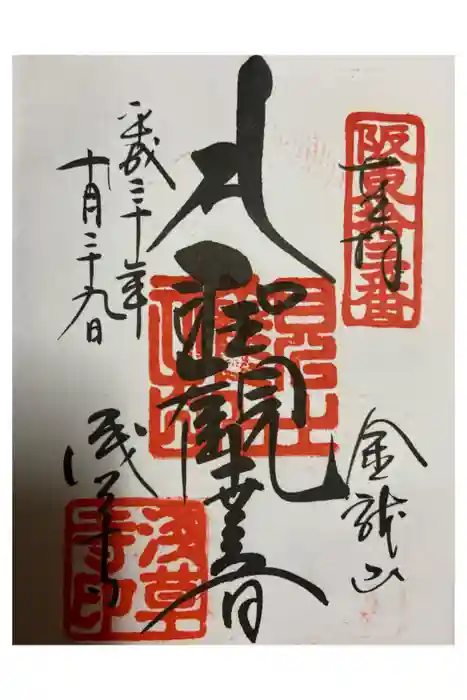 阪東拾三番
奉拝
金龍山
聖観世音
浅草寺
浅草寺印
平成三十年
十月二十九日